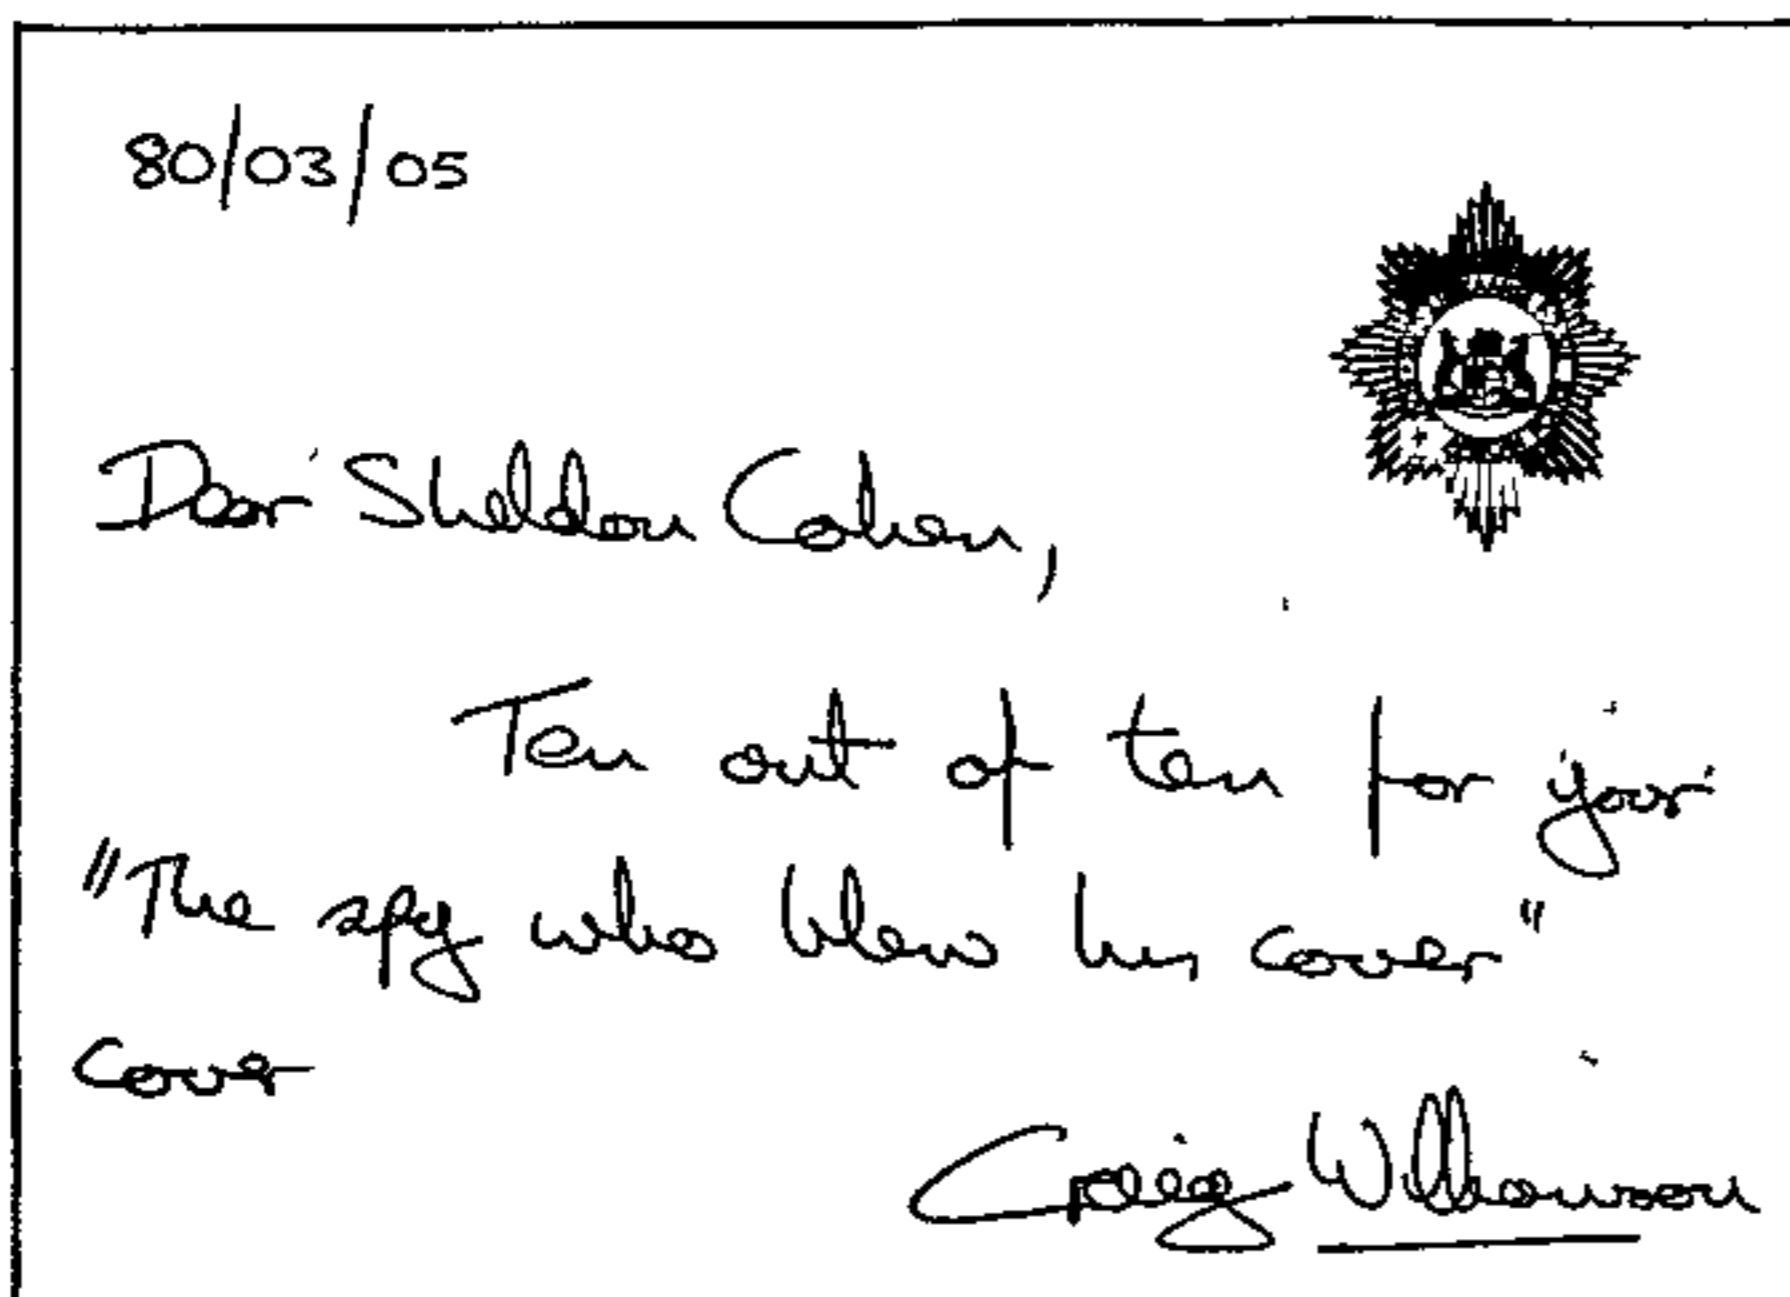 80/03/05
Dear Sheldon Cohen,
Ten out of ten for your
"The spy who blew his cover"
cover
Craig Williamson